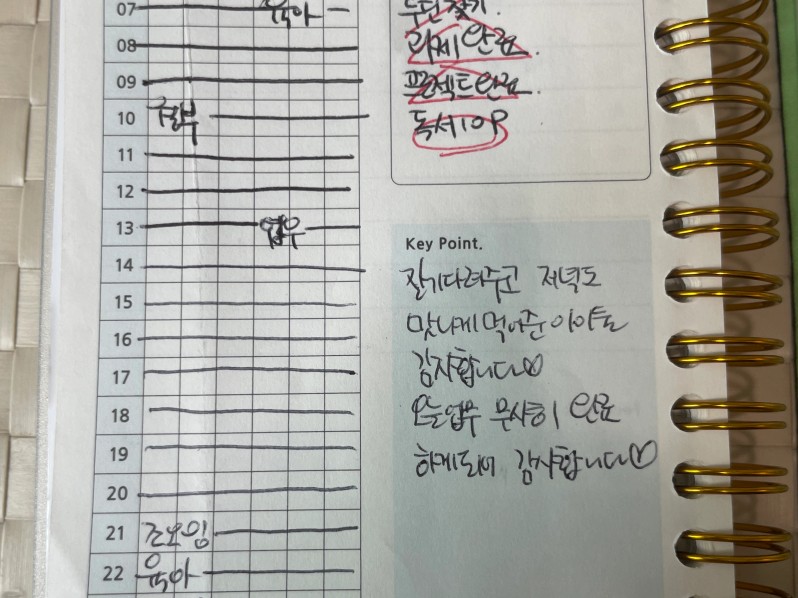 07 육아
08
09
10
11
12
13 업무
14
15
16
17
18
19
20
21 줌모임
22 육아
과제 완료.
프로젝트 완료.
독서 10P
Key Point.
잘 기다려주고 저녁도
맛나게 먹어준 이이들
감사합니다♡
오늘 업무 무사히 완료
하게되어 감사합니다♡